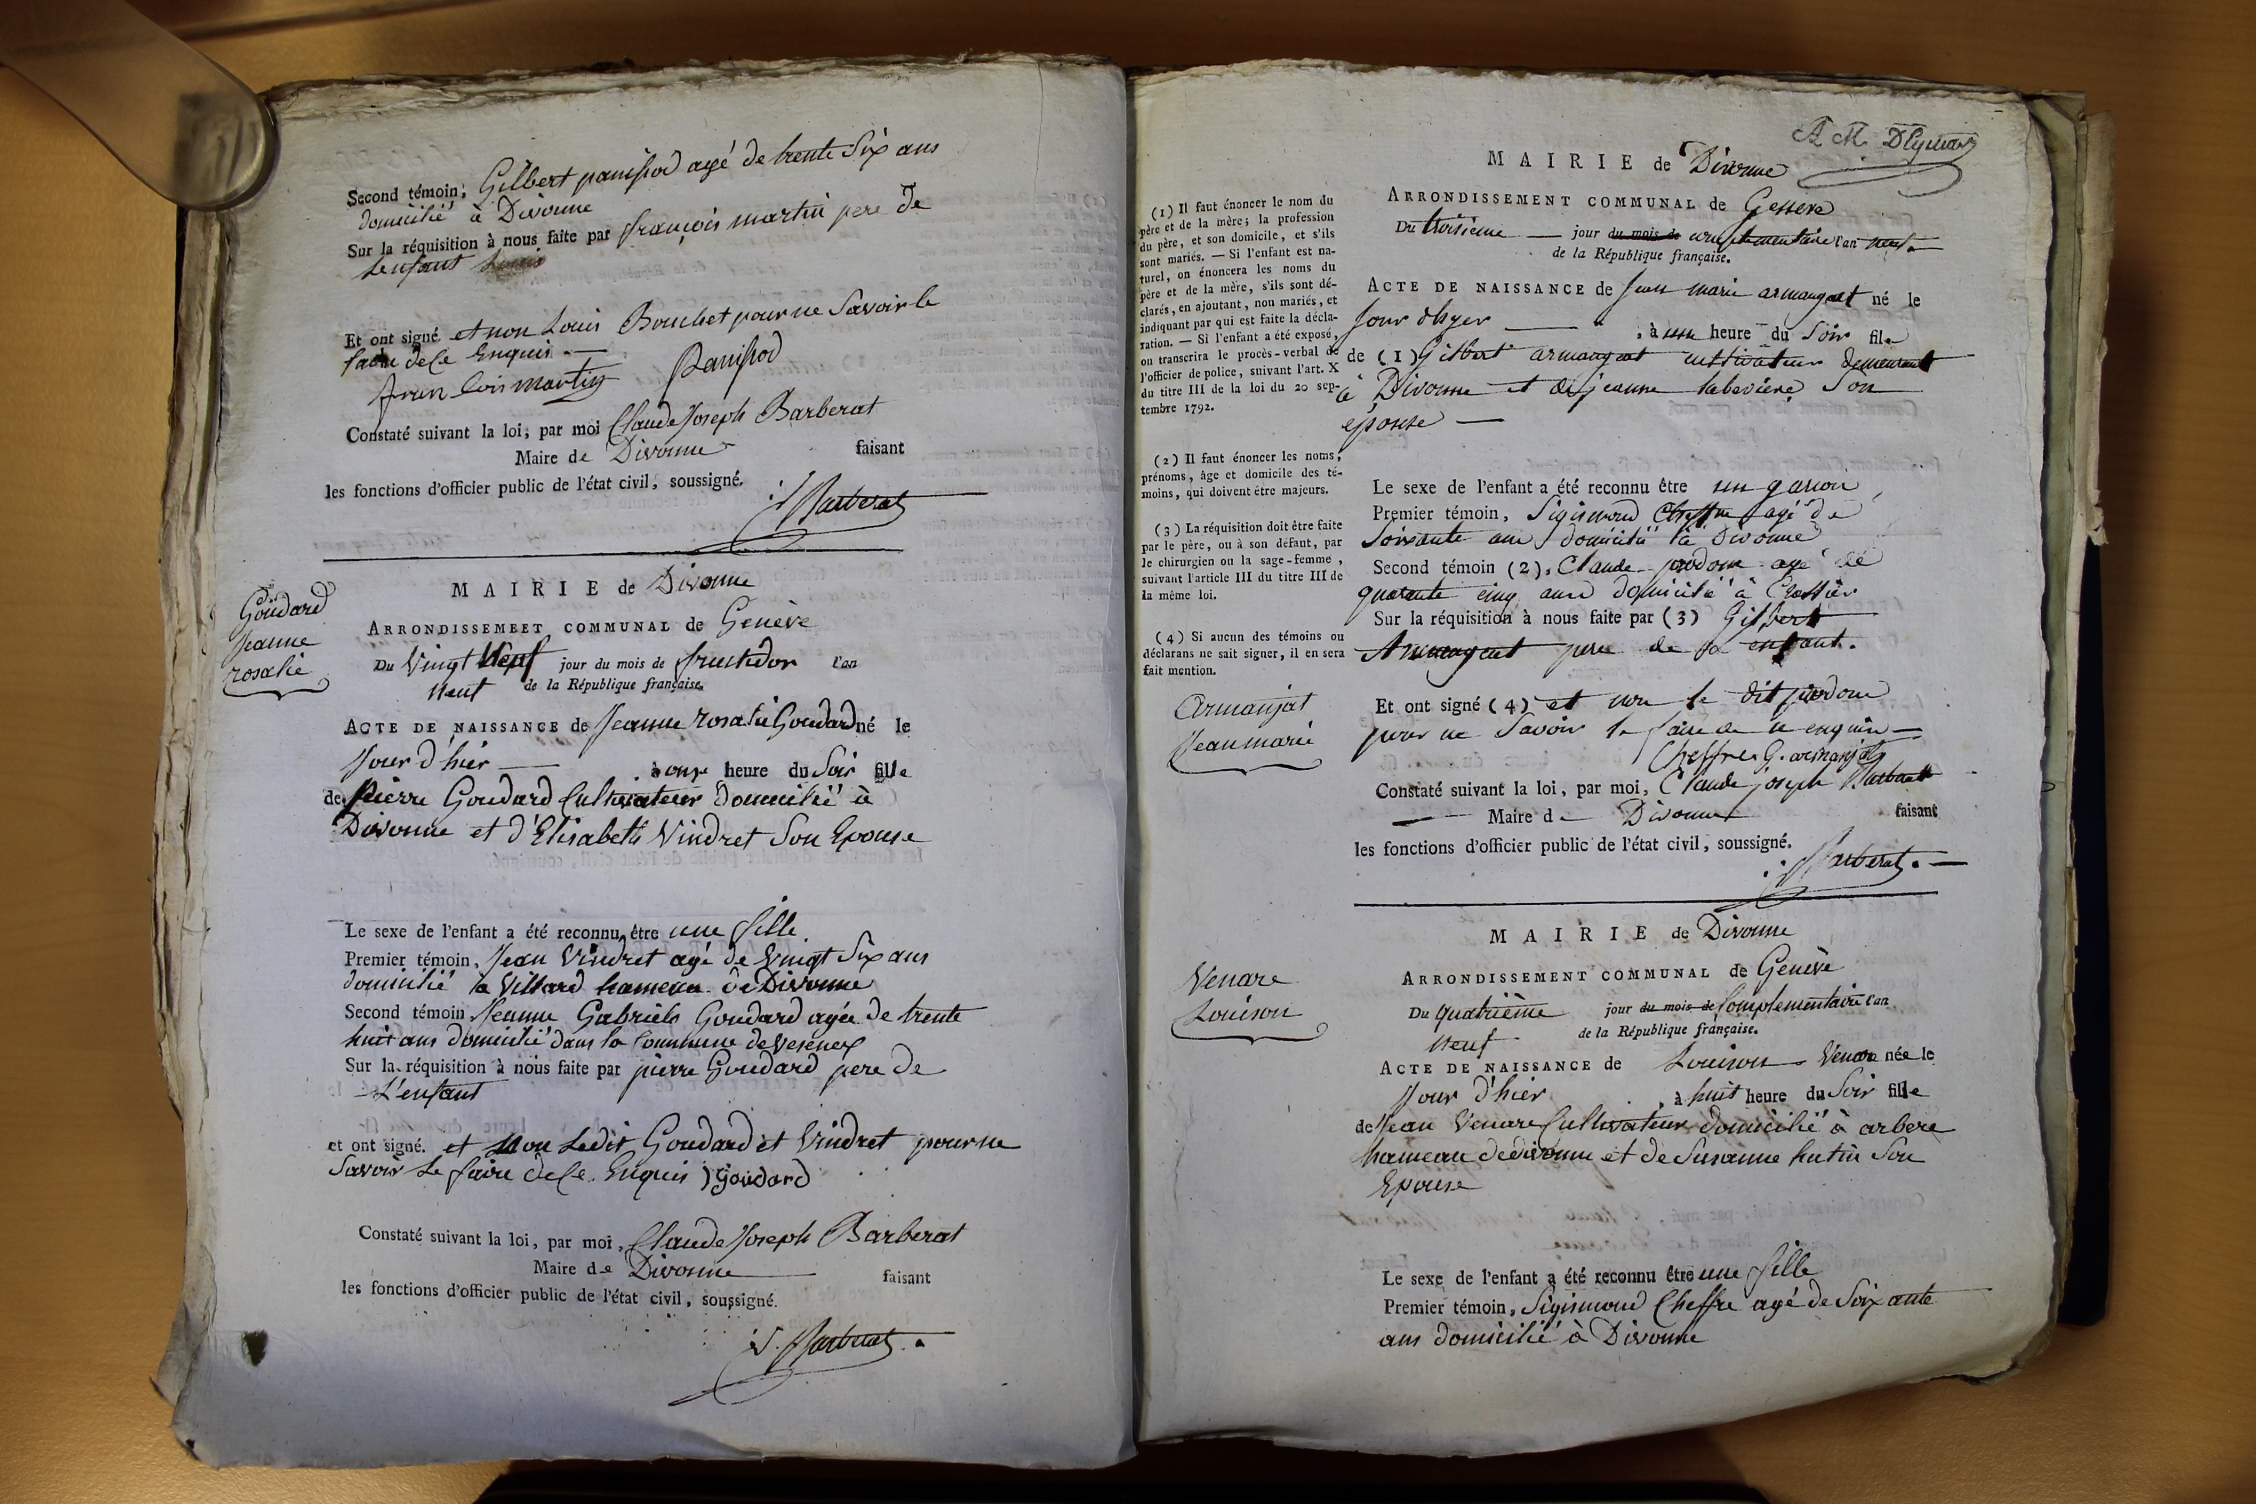 Second témoin, Gilbert panissod agé de trente Six ans
domicilié à Divonne
Sur la réquisition à nous faite par françois martin pere de
Lenfant
Et ont signé et non Louis Bouchet pour ne Savoir le
faire de Ce Enquis.
fran Cois martin Panissod
Constaté suivant la loi, par moi Claude Joseph Barberat
Maire de Divonne faisant
les fonctions d'officier public de l'état civil, soussigné.
Barberat
Goudard
Jeanne
rosalie
MAIRIE de Divonne
ARRONDISSEMEET COMMUNAL de Genève
Du Vingt Neuf jour du mois de fructidor l'an
Neuf de la République française.
ACTE DE NAISSANCE de Jeanne rosalie Goudard né le
Jour d'hier à onze heure du Soir fille
de Pierre Goudard Cultivateur domicilié à
Divonne et d'Elisabeth Vindret Son Epouse
Le sexe de l'enfant a été reconnu être une fille
Premier témoin, Jean Vindret agé de Vingt Six ans
domicilié a Villard hameau de Divonne
Second témoin Jeanne Gabriele Goudard agée de trente
huit ans domicilié dans la Commune de Vesenex
Sur la réquisition à nous faite par pierre Goudard pere de
L'enfant
et ont signé. et Non Ledit Goudard et Vindret pour ne
Savoir Le faire de Ce Enquis J Goudard
Constaté suivant la loi, par moi, Claude Joseph Barberat
Maire de Divonne faisant
les fonctions d'officier public de l'état civil, soussigné.
J. Barberat.
MAIRIE de Divonne
ARRONDISSEMENT COMMUNAL de Geneve
Du troisieme jour du mois de complementaire l'an neuf.
de la République française.
(1) Il faut énoncer le nom du
père et de la mère; la profession
du père, et son domicile, et s'ils
sont mariés. — Si l'enfant est na-
turel, on énoncera les noms du
père et de la mère, s'ils sont dé-
clarés, en ajoutant, non mariés, et
indiquant par qui est faite la décla-
ration. — Si l'enfant a été exposé,
on transcrira le procès-verbal de
l'officier de police, suivant l'art. X
du titre III de la loi du 20 sep-
tembre 1792.
(2) Il faut énoncer les noms,
prénoms, âge et domicile des té-
moins, qui doivent être majeurs.
(3) La réquisition doit être faite
par le père, ou à son défaut, par
le chirurgien ou la sage-femme,
suivant l'article III du titre III de
la même loi.
(4) Si aucun des témoins ou
déclarans ne sait signer, il en sera
fait mention.
Armanjat
Jean marie
ACTE DE NAISSANCE de Jean marie armangeat né le
Jour dhyer à une heure du Soir fils
de (1) Gilbert armangeat cultivateur demeurant
à Divonne et de jeanne Son
épouse
Le sexe de l'enfant a été reconnu être un garçon
Premier témoin, Sigismond Cheffre agé de
Soixante ans domicilié à Divonne
Second témoin (2), Claude prodon agé de
quarante cinq ans domicilié à
Sur la réquisition à nous faite par (3) Gilbert
Armangeat pere de l'enfant.
Et ont signé (4) et non le dit prodon
pour ne Savoir le faire de ce enquis
Cheffre G. armanjat
Constaté suivant la loi, par moi, Claude joseph Barberat
Maire de Divonne faisant
les fonctions d'officier public de l'état civil, soussigné.
Barberat.
Venare
Louison
MAIRIE de Divonne
ARRONDISSEMENT COMMUNAL de Genève
Du quatrième jour du mois de Complementaire l'an
Neuf de la République française.
ACTE DE NAISSANCE de Louison Venare née le
Jour d'hier, à huit heure du Soir fille
de Jean Venare Cultivateur domicilié à arbere
hameau de divonne et de Susanne hutin Son
Epouse
Le sexe de l'enfant a été reconnu être une fille
Premier témoin, Sigismond Cheffre agé de Soixante
ans domicilié à Divonne